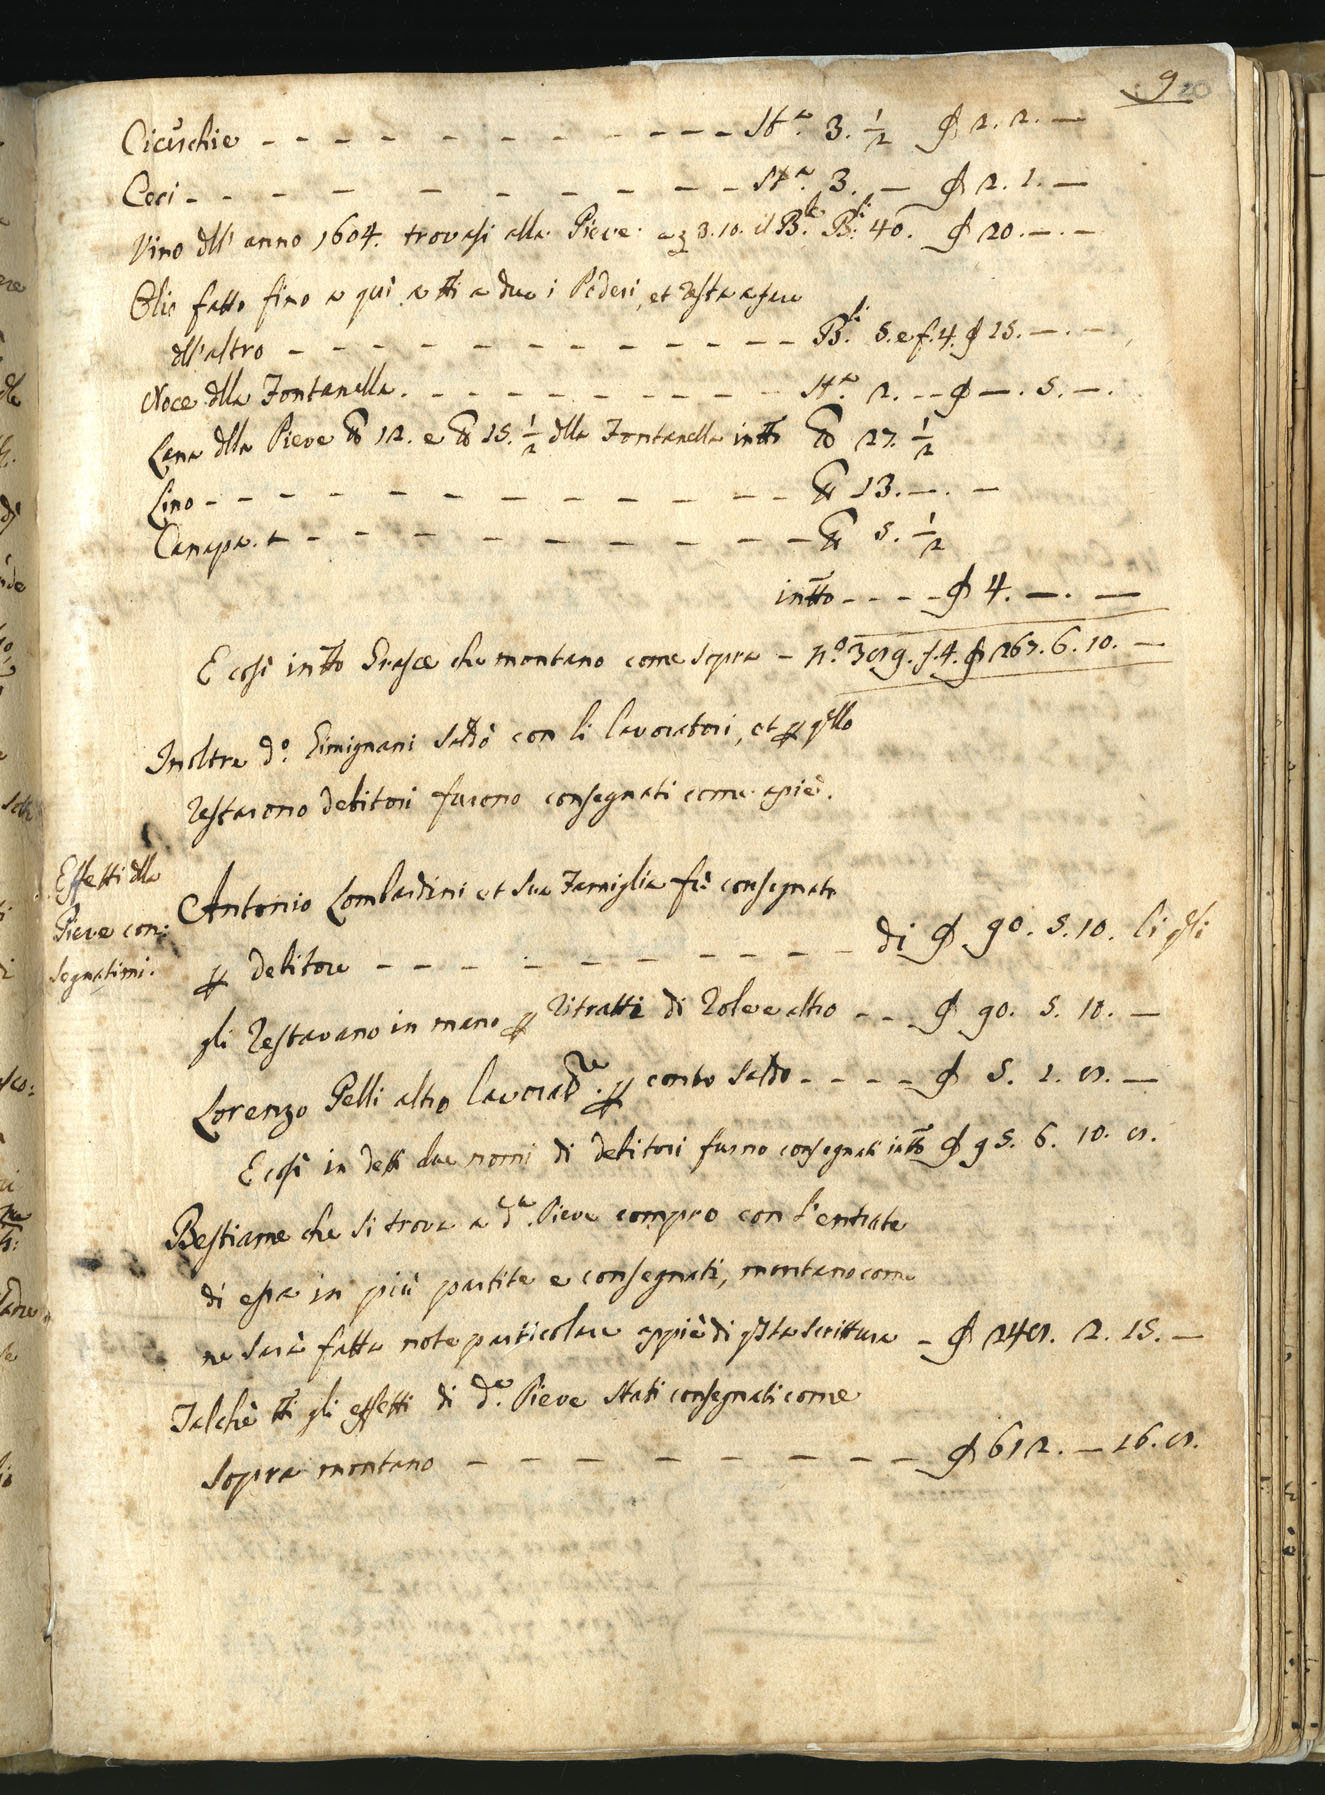 9 20
Cicerchie - - - - - - - - - - - St.a 3. 1/2 ₰ 2. 2. —
Ceci - - - - - - - - - St.a 3. — ₰ 2. 1. —
Vino dll' anno 1604. trovasi alla Pieve a 3.10. il B.le B.li 40. ₰ 20. — . —
Olio fatto fino a qui a tti a due i Poderi, et resta a fare
dll'altro - - - - - - - - - - - - B.li 5. e f. 4. ₰ 15. — . —
Noce dlla Fontanella. - - - - - - - - - St.a 2. - - ₰ — . 5. — .
Lana dlla Pieve ℔ 12. e ℔ 15. 1/2 dlla Fontanella intto ℔ 27. 1/2
Lino - - - - - - - - - - - - ℔ 13. — . —
Canapa. - - - - - - - - - - - ℔ 5. 1/2
intto - - - - ₰ 4. — . —
E così intto Grascie che montano come sopra - n.o 319. f. 4. ₰ 267. 6. 10. —
Inoltre d.o Gimignani saldò con li lavoratori, et p qllo
restarono debitori furono consegnati come apiè.
Effetti dlla
Pieve con:
segnatimi.
Antonio Lombardini et sua Famiglia fù consegnato
p debitore - - - - - - - - - - di ₰ 90. 5. 10. li qli
gli restavano in mano p ritratti di Role e altro - - ₰ 90. 5. 10. —
Lorenzo Pelli altro lavorad.re p conto saldo - - - - ₰ 5. 1. 0. —
E così in detti due nomi di debitori furno consegnati intto ₰ 95. 6. 10. 0.
Bestiame che si trova a d.a Pieve compro con l'entrate
di essa in più partite e consegnati, montano come
ne sarà fatta nota particolare appiè di qsta scrittura - ₰ 249. 2. 15. —
Talchè tti gli effetti di d.a Pieve stati consegnati come
sopra montano - - - - - - - - - ₰ 612. — 16. 0.